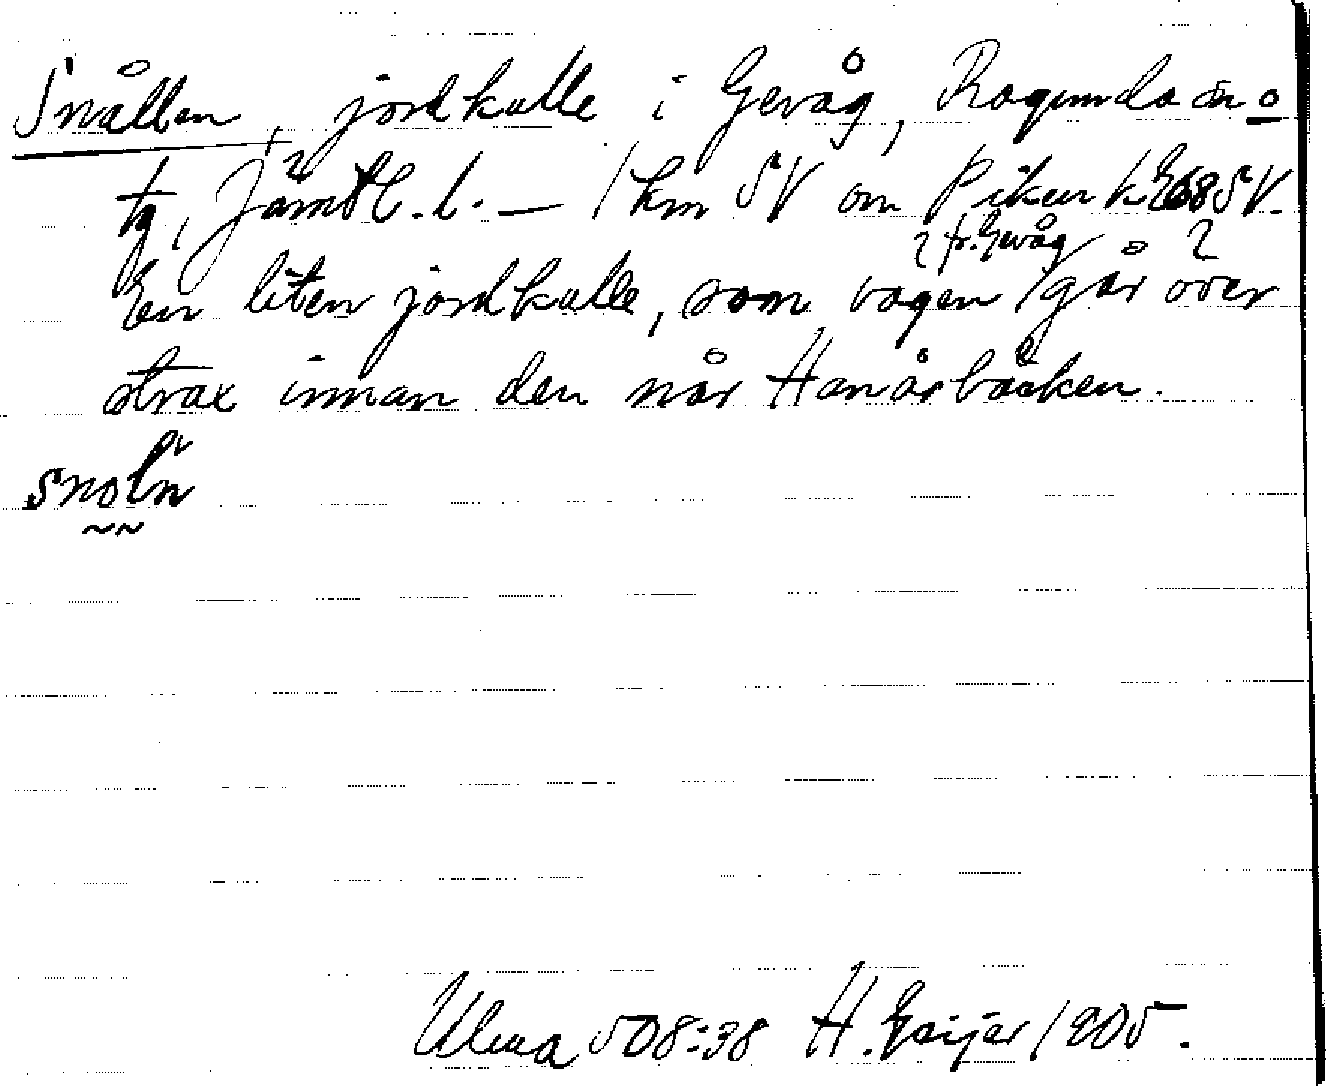 Snållen, jordkulle i Gevåg, Ragunda sn o
tg, Jämtl. l. — 1 km SV om Pikur k 68 SV.
fr. Gevåg
En liten jordkulle, som vägen går över
strax innan den når Hanåsbäcken.
snoln
Ulma 508:38 H. Geijer 1905.